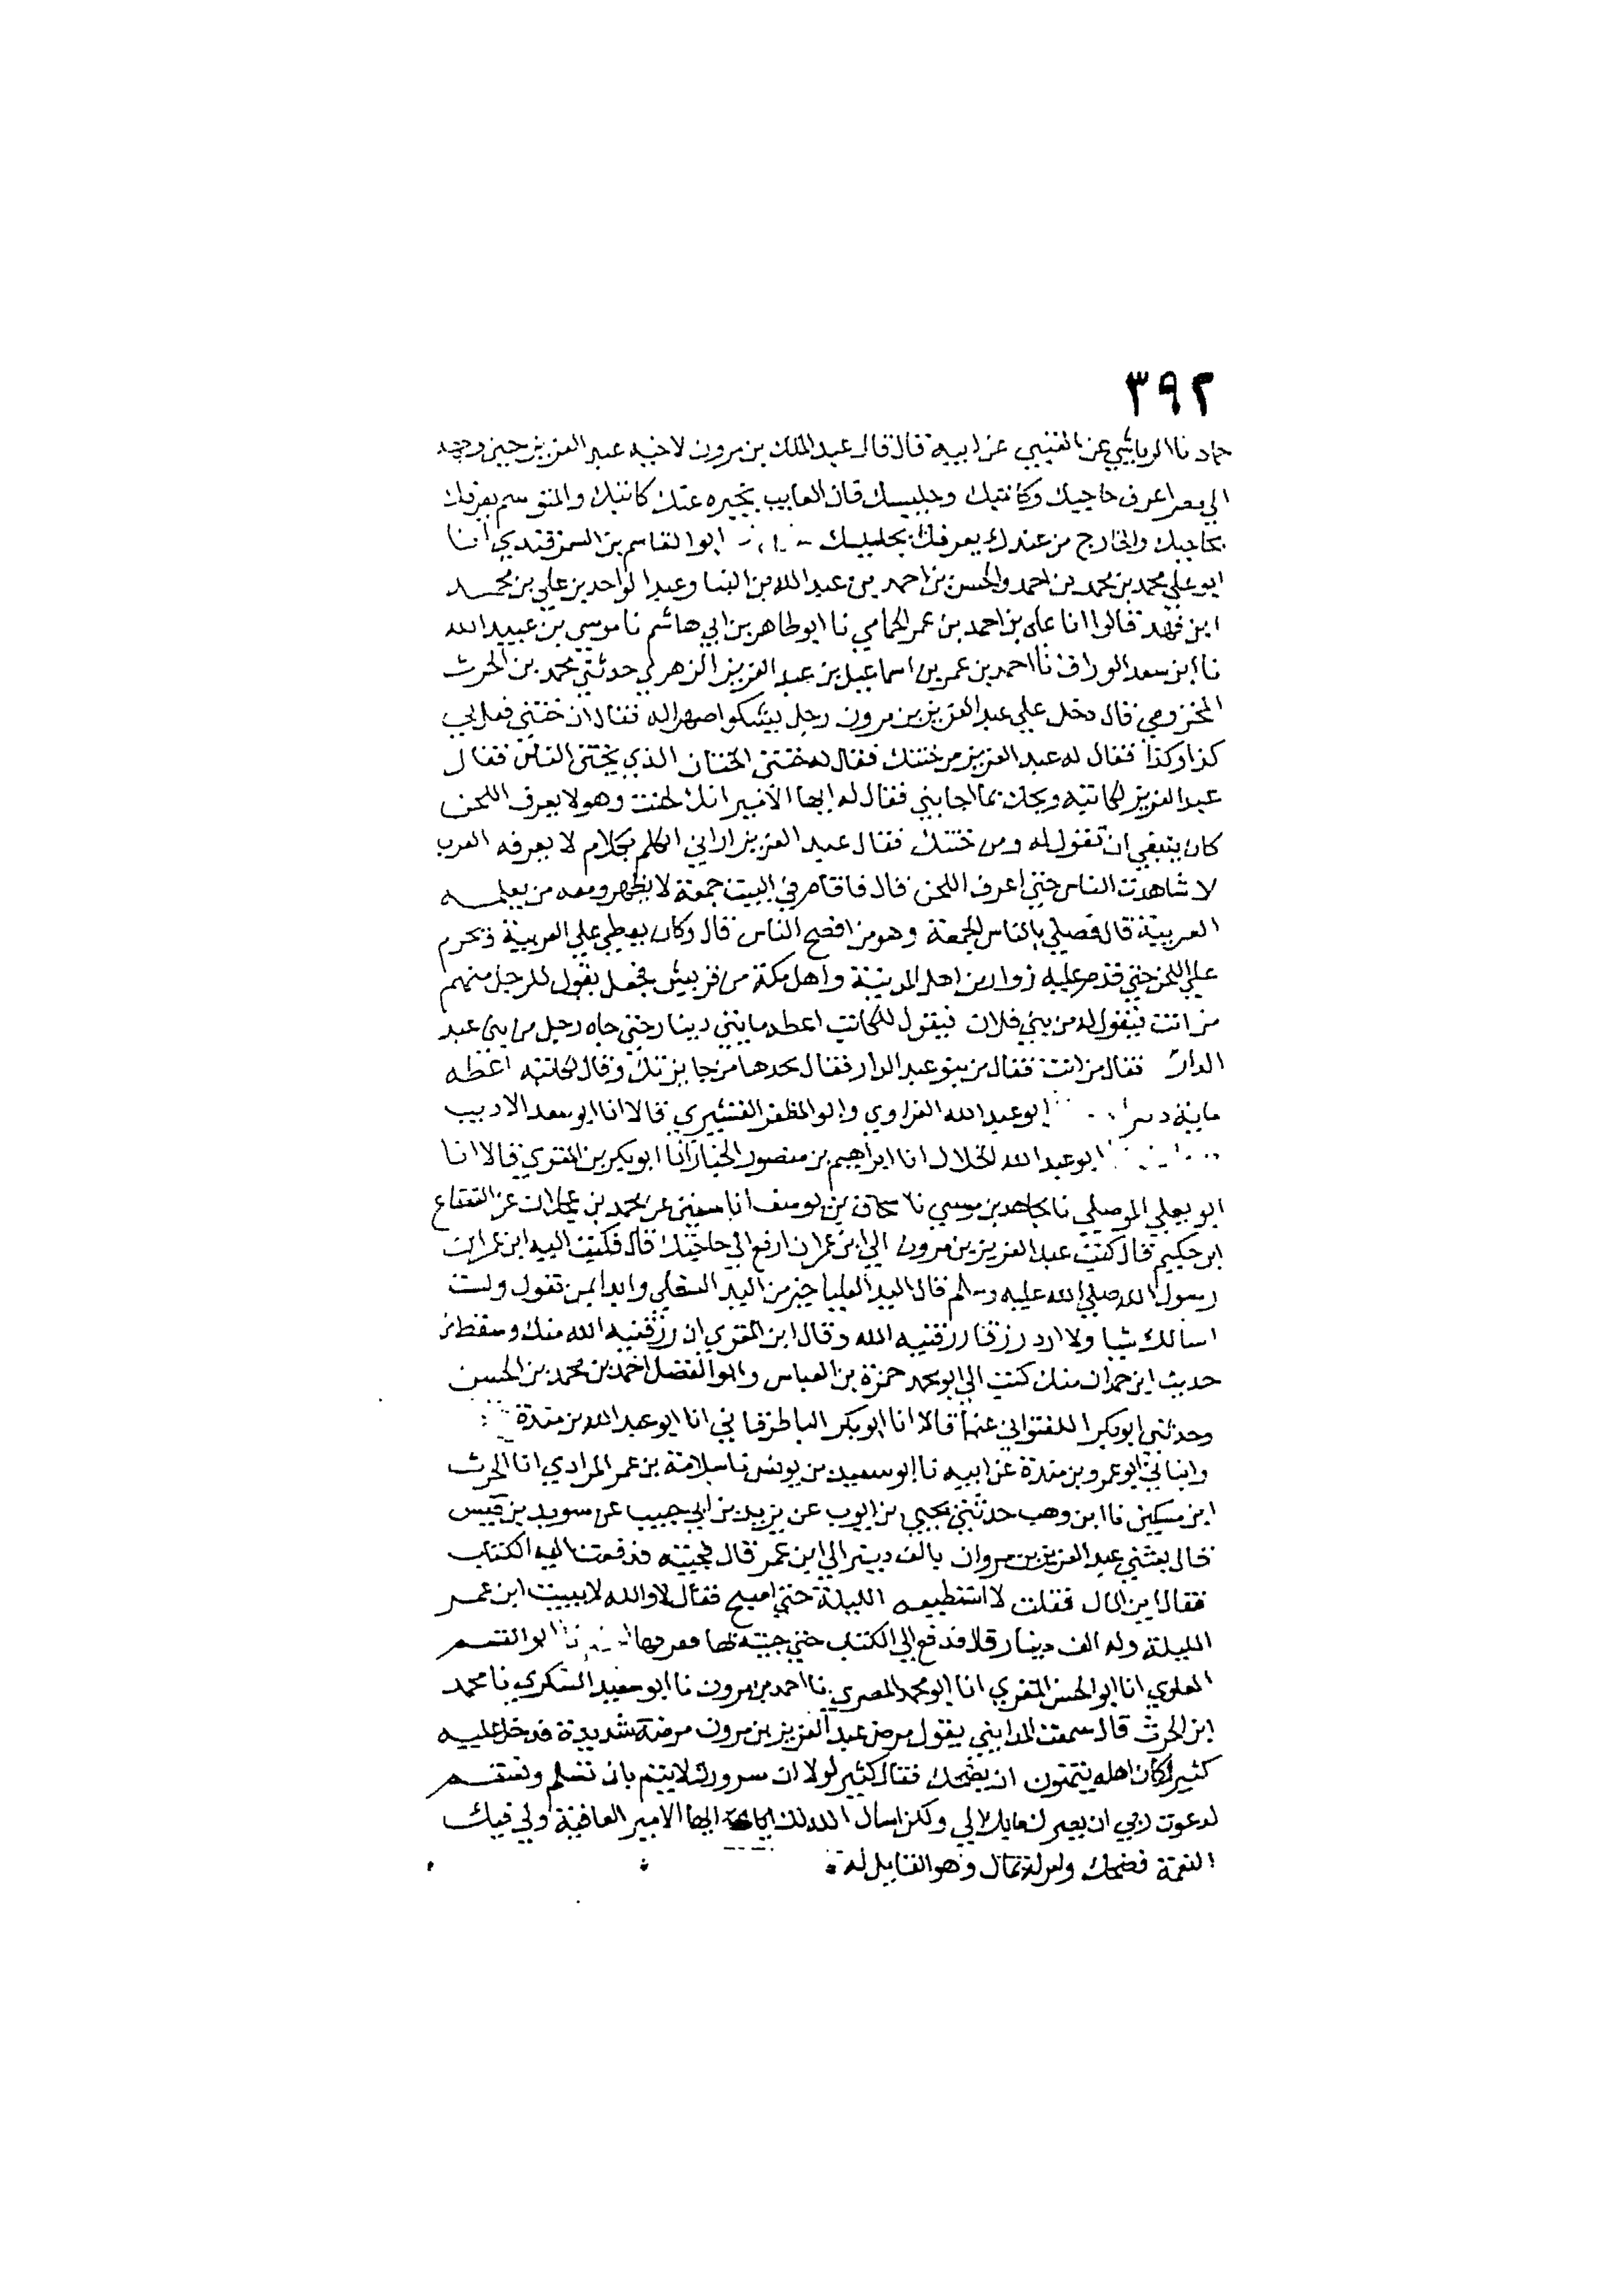 ٣٩٢
حماد نا الرياشي عن العتبي عن ابيه قال قال عبد الملك بن مرون لاخيه عبد العزيز حين وجهه
الي مصر اعرف حاجبك وكاتبك وجليسك فان الغايب يخبره عنك كاتبك والمتوسم يعرفك
بحاجبك والخارج من عندك يعرفك بجليسك ابو القاسم بن السمرقندي أنا
ابو علي محمد بن محمد بن احمد والحسن بن احمد بن عبد الله بن البنا وعبد الواحد بن علي بن محمد
ابن فهد قالوا انا علي بن احمد بن عمر الحمامي نا ابو طاهر بن ابي هاشم نا موسي بن عبيد الله
نا ابن سعد الوراق نا احمد بن عمر بن اسماعيل بن عبد العزيز الزهري حدثني محمد بن الحرث
المخزومي قال دخل علي عبد العزيز بن مرون رجل يشكوا صهرا له فقال ان ختني فعل بي
كذا وكذا فقال له عبد العزيز من ختنك فقال له ختني الختان الذي يختن الناس فقال
عبد العزيز لكاتبه ويحك بما اجابني فقال له ايها الامير انك لحنت وهو لا يعرف اللحن
كان ينبغي ان تقول له ومن ختنك فقال عبد العزيز اراني اتكلم بكلام لا يعرفه العرب
لا شاهدت الناس حتي اعرف اللحن قال فاقام في البيت جمعة لا يظهر ومعه من يعلمه
العربية قال فصلي بالناس الجمعة وهو من افصح الناس قال وكان يعطي علي العربية ويحرم
علي اللحن حتي قدم عليه زوار من اهل المدينة واهل مكة من قريش فجعل يقول للرجل منهم
من انت فيقول له من بني فلان فيقول للكاتب اعطه مايتي دينار حتي جاه رجل من بني عبد
الدار فقال من انت فقال من بنو عبد الدار فقال تجدها من جايزتك وقال لكاتبه اعطه
ماية دينار ابو عبد الله الفراوي وابو المظفر القشيري قالا انا ابو سعد الاديب
ابو عبد الله الخلال انا ابراهيم بن منصور الخباز انا ابو بكر بن المقري قالا انا
ابو يعلي الموصلي نا مجاهد بن موسي نا اسحاق بن يوسف انا سفين عن محمد بن عجلان عن القعقاع
ابن حكيم قال كتب عبد العزيز بن مرون الي ابن عمر ان ارفع الي حاجتك قال فكتب اليه ابن عمر ان
رسول الله صلي الله عليه وسلم قال اليد العليا خير من اليد السفلي وابدا بمن تعول ولست
اسالك شيا ولا ارد رزقا رزقنيه الله وقال ابن المقري ان رزقنيه الله منك وسقط من
حديث ابن حمدان منك كتب الي ابو محمد حمزة بن العباس وابو الفضل احمد بن محمد بن الحسن
وحدثني ابو بكر اللفتواني عنهما قالا انا ابو بكر الباطرقاني انا ابو عبد الله بن مندة
وانباني ابو عمرو بن مندة عن ابيه نا ابو سعيد بن يونس نا سلامة بن عمر المرادي انا الحرث
ابن مسكين نا ابن وهب حدثني يحيي بن ايوب عن يزيد بن ابي حبيب عن سويد بن قيس
قال بعثني عبد العزيز بن مروان بالف دينر الي ابن عمر قال فجيته فدفعت اليه الكتاب
فقال اين المال فقلت لا استطيعه الليلة حتي اصبح فقال لا والله لا يبيت ابن عمر
الليلة وله الف دينار قال فدفع الي الكتاب حتي جيته بها ففرقها ابو القسم
العلوي انا ابو الحسن المقري انا ابو محمد المصري نا احمد بن مرون نا ابو سعيد السكري نا محمد
ابن الحرث قال سمعت المدايني يقول مرض عبد العزيز بن مرون مرضة شديدة فدخل عليه
كثير وكان اهله يتمنون ان يضحك فقال كثير لولا ان سرورك لا يتم بان تسلم ونسقم
لدعوت ربي ان يصير ما بك الي ولكن اسال الله لك ايها الامير العافية ولي فيك
النعمة فضحك وامر له بمال وهو القايل له